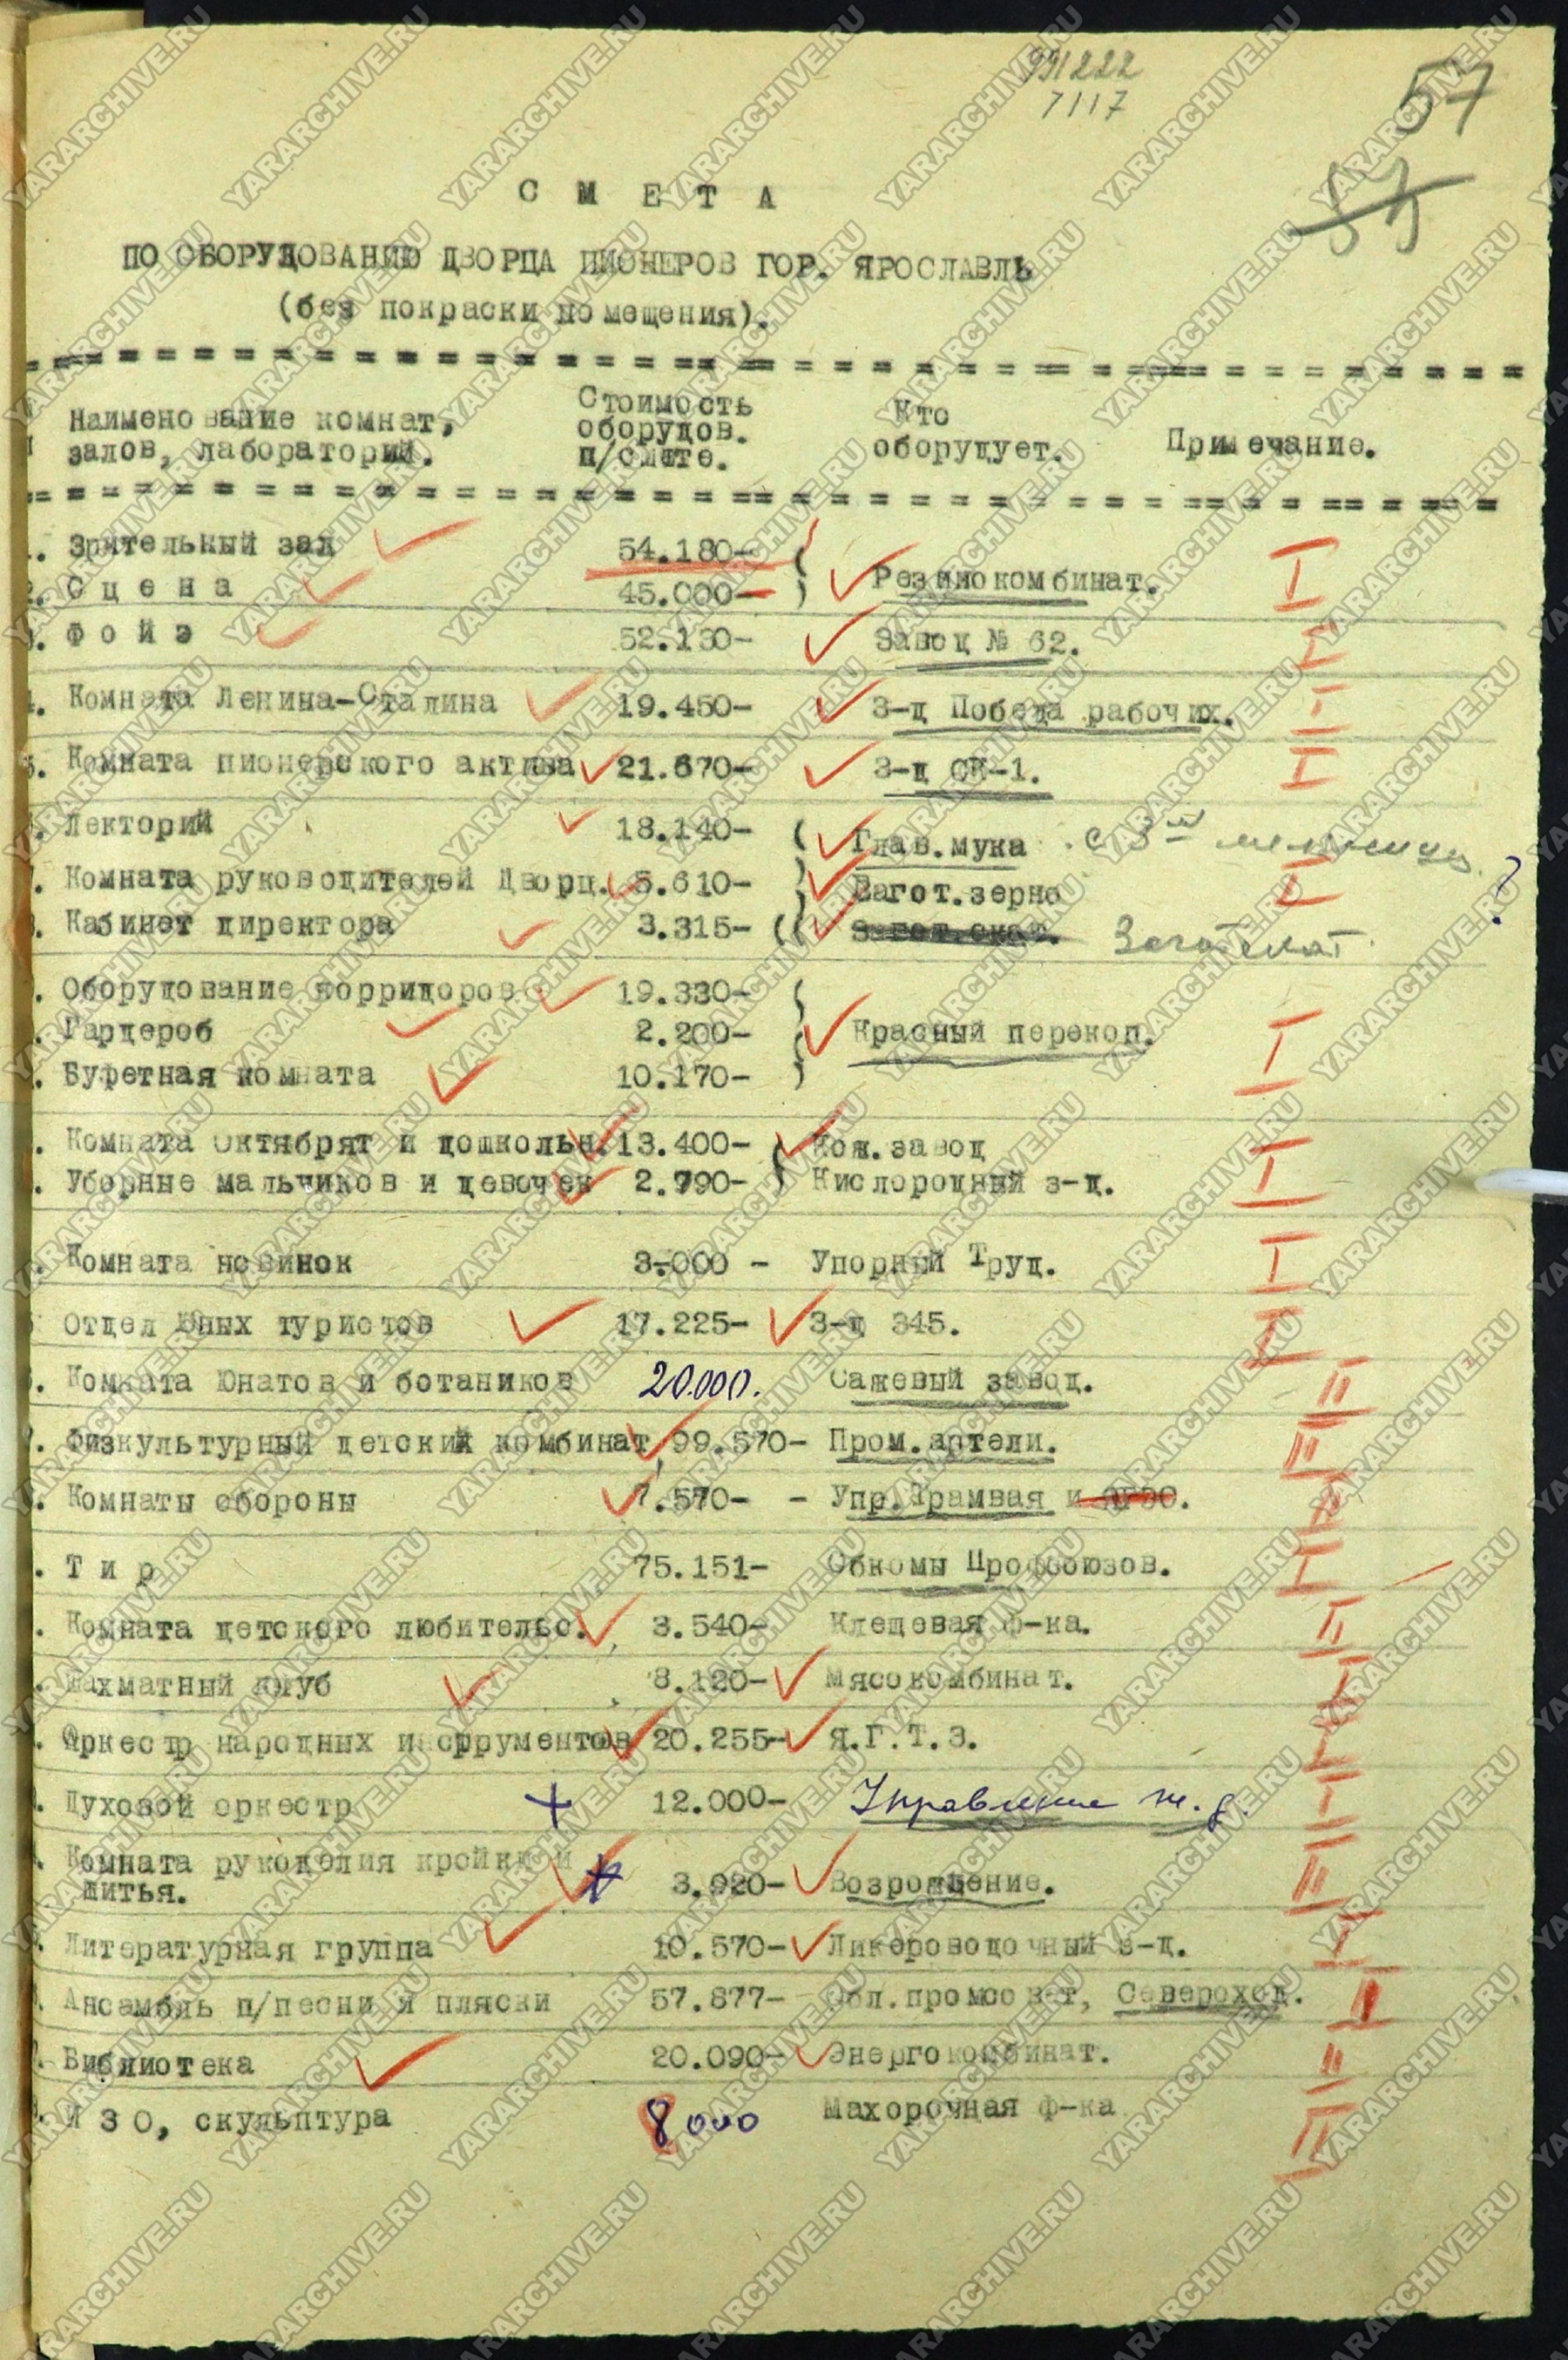 991222
7117
57
С М Е Т А
ПО ОБОРУДОВАНИЮ ДВОРЦА ПИОНЕРОВ ГОР. ЯРОСЛАВЛЬ
(без покраски помещения).
Наименование комнат, залов, лабораторий. Стоимость оборудов. п/смете. Кто оборудует. Примечание.
Зрительный зал 54.180-
Резинокомбинат. I
С ц е н а 45.000-
Ф о й э 52.130- Завод № 62. I
Комната Ленина-Сталина 19.450- З-д Победа рабочих. I
Комната пионерского актива 21.670- З-д СК-1. I
Лекторий 18.140- Глав.мука с 3й мельницу
Комната руководителей Дворц. 5.610- Загот.зерно I ?
Кабинет директора 3.315- Загот.скот. Заготскот
Оборудование корридоров 19.330-
Гардероб 2.200- Красный перекоп. I
Буфетная комната 10.170-
Комната Октябрят и дошкольн. 13.400- Кож.завод
Уборные мальчиков и девочек 2.790- Кислородный з-д. I
Комната новинок 3.000 - Упорный Труд. I
Отдел Юных туристов 17.225- З-д 345. I
Комната Юнатов и ботаников 20.000. Сажевый завод. II
Физкультурный детский комбинат 99.570- Пром.артели. II
Комнаты обороны 7.570- - Упр.Трамвая и ЯГЭС. II
Т и р 75.151- Обкомы Профсоюзов. I
Комната детского любительс. 3.540- Клещевая ф-ка. II
Шахматный клуб 8.120- Мясокомбинат. I
Оркестр народных инструментов 20.255- Я.Г.Т.З. I
Духовой оркестр + 12.000- Управление ж.д. I
Комната рукоделия кройки и
шитья. + 3.920- Возрождение. II
Литературная группа 10.570- Ликероводочный з-д. I
Ансамбль п/песни и пляски 57.877- Обл.промсовет, Североход. I
Библиотека 20.090- Энергокомбинат. II
И З О, скульптура 8000 Махорочная ф-ка II
YARARCHIVE.RU